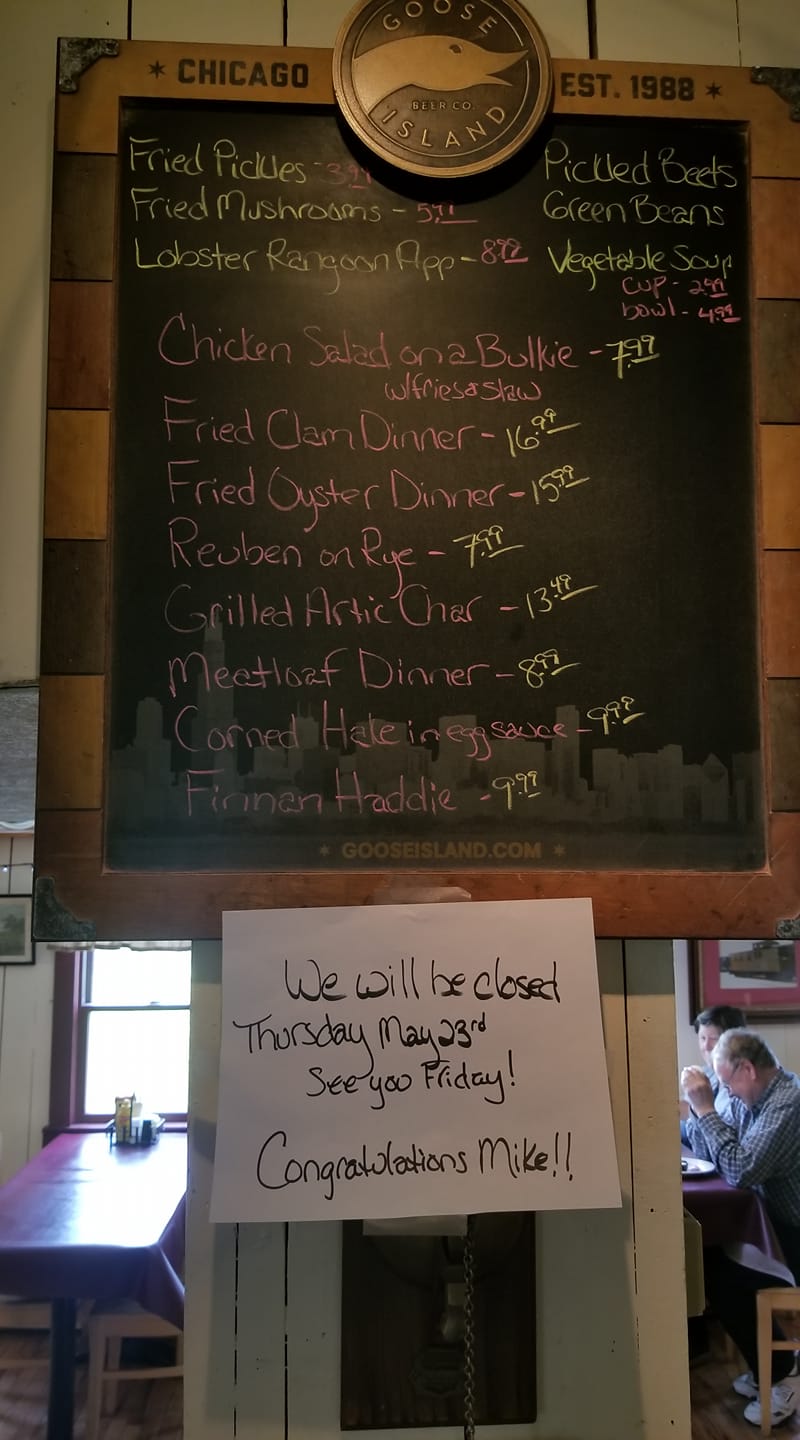 CHICAGO
GOOSE
BEER CO.
ISLAND
EST. 1988
Fried Pickles - 3.99
Fried Mushrooms - 5.99
Lobster Rangoon App - 8.99
Pickled Beets
Green Beans
Vegetable Soup
cup - 2.99
bowl - 4.99
Chicken Salad on a Bulkie - 7.99
w/fries & slaw
Fried Clam Dinner - 16.99
Fried Oyster Dinner - 15.99
Reuben on Rye - 7.99
Grilled Artic Char - 13.49
Meatloaf Dinner - 8.99
Corned Hake in egg sauce - 9.99
Finnan Haddie - 9.99
GOOSEISLAND.COM
We will be closed
Thursday May 23rd
See you Friday!
Congratulations Mike!!